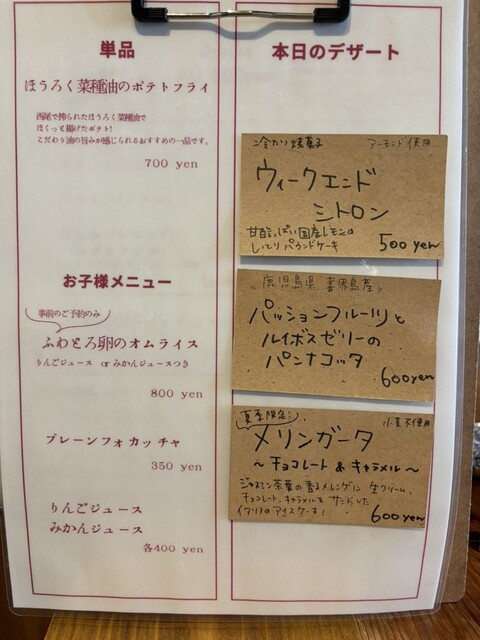 単品
ほうろく菜種油のポテトフライ
西尾で搾られたほうろく菜種油で
ほくっと揚げたポテト!
こだわり油の旨みが感じられるおすすめの一品です。
700 yen
お子様メニュー
事前のご予約のみ
ふわとろ卵のオムライス
りんごジュース or みかんジュースつき
800 yen
プレーンフォカッチャ
350 yen
りんごジュース
みかんジュース
各400 yen
本日のデザート
冷たい焼菓子 アーモンド使用
ウィークエンド
シトロン
甘酸っぱい国産レモンの
しっとりパウンドケーキ 500 yen
鹿児島県 喜界島産
パッションフルーツと
ルイボスゼリーの
パンナコッタ
600yen
夏季限定! 小麦不使用
メリンガータ
~チョコレート&キャラメル~
ジャスミン茶葉の香るメレンゲに 生クリーム、
チョコレート、キャラメルをサンドした
イタリアのアイスケーキ!
600yen